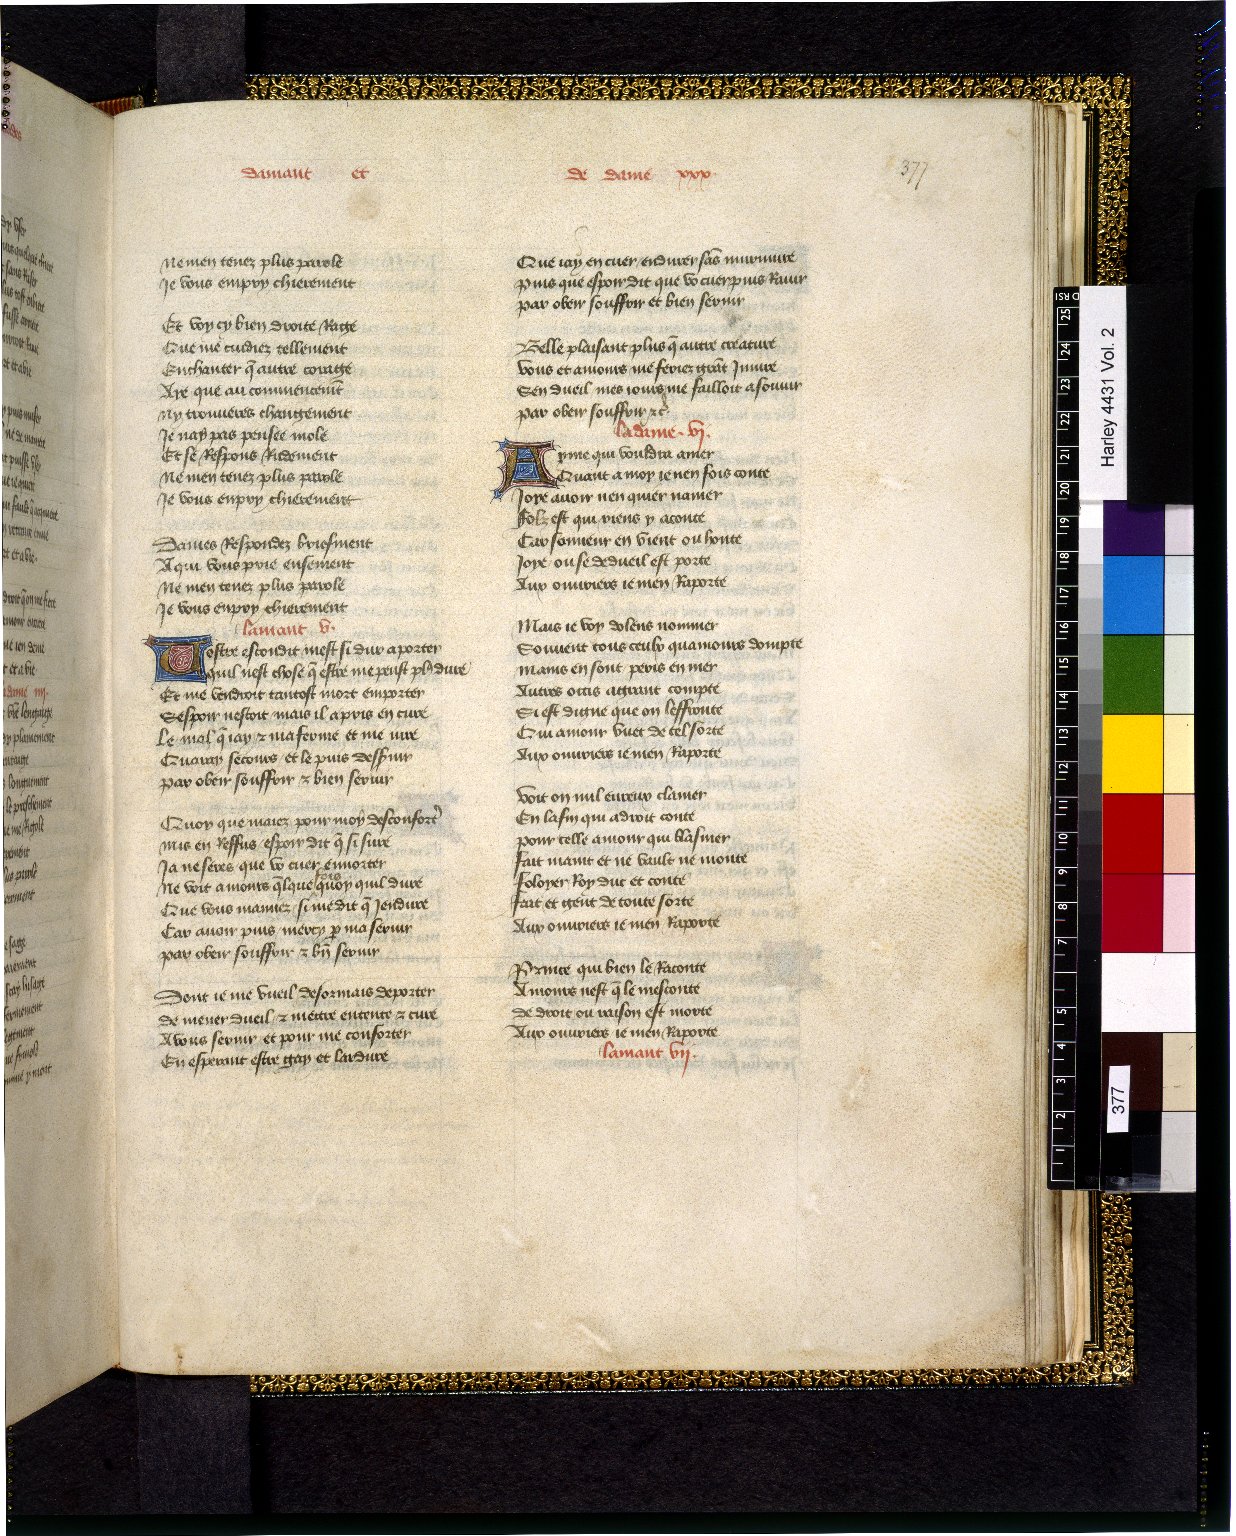 damant et
de dame xxx.
377
Ne men tenez plus parole
Je vous empry chierement
Et voy cy bien droite Rage
Que me cuidiez tellement
Enchanter q̃ autre corage
Aye que au commencemt̃
Ny trouveres changement
Je nay pas pensee mole
Et se Respons Rudement
Ne men tenez plus parole
Je vous enpry chierement
Dames Respondez briefment
A qui vous prie ensement
Ne men tenez plus parole
Je vous enpry chierement
lamant v.
Vostre escondit mest si dur a porter
quil nest chose q̃ estre me peust pl9 dure
Et me vendroit tantost mort emporter
Sespoir nestoit mais il a pris en cure
Le mal q̃ iay z ma ferme et me iure
Quaray secours et le puis desseruir
Par obeir souffrir z bien seruir
Quoy que maiez pour moy desconforter
Mis en Reffus espoir dit q̃ si sure
Ja ne seres que vo cuer enhorter
Ne voit amours q̃lque fois quoy quil dure
Que vous mamiez si me dit q̃ Jendure
Car auoir puis mercy p̱ ma seruir
Par obeir souffrir z bñ seruir
Dont ie me vueil desormais deporter
De mener dueil z mettre entente z cure
A vous seruir et pour me conforter
En esperant estre gay et lardure
Que iay en cuer endurer sãs murmure
Puis que espoir dit que vo cuer puis Rauir
Par obeir souffrir et bien seruir
Belle plaisant plus q̃ autre creature
Vous et amours me feriez grãt Iniure
Sen dueil mes iours me failloit assouuir
Par obeir souffrir zc̃
la dame. vi.
Ayme qui vouldra amer
Quant a moy ie nen fois conte
Joye auoir nen quier namer
Folz est qui viens y aconte
Car sonneur en vient ou honte
Joye ou se de dueil est porte
Aux ouuriers ie men Raporte
Mais ie voy dolens nommer
Souuent tous ceulx quamours dompte
Mains en sont peris en mer
Autres occis a grant compte
Si est digne que on leffronte
Qui amour vuet de tel sorte
Aux ouuriers ie men Raporte
Voit on nul eureux clamer
En la fin qui a droit conte
Pour telle amour qui blasmer
Fait maint et ne vault ne monte
Foloyer Roy duc et conte
Fait et gent de toute sorte
Aux ouuriers ie men Raporte
Prince qui bien le Raconte
Amours nest q̃ le mesconte
De droit ou raison est morte
Aux ouuriers ie men Raporte
lamant vii.
Harley 4431 Vol. 2
377
25
24
23
22
21
20
19
18
17
16
15
14
13
12
11
10
9
8
7
5
4
3
2
1